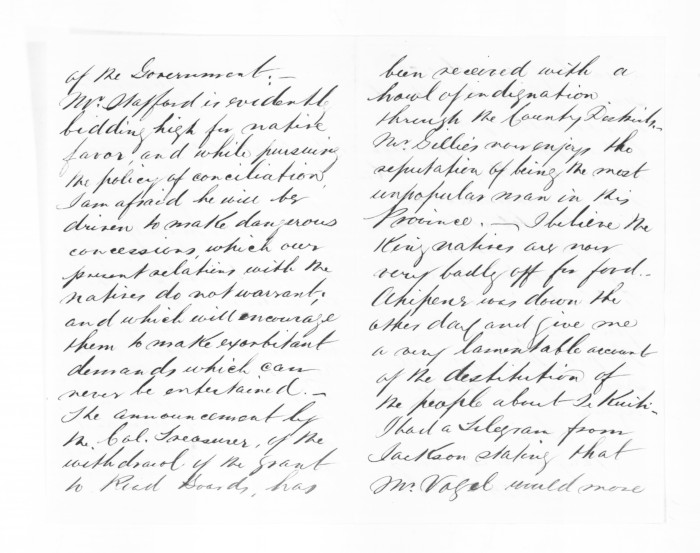 of the Government. —
Mr. Stafford is evidently
bidding high for native
favor, and while pursuing
the policy of conciliation,
I am afraid he will be
driven to make dangerous
concessions, which our
present relations with the
natives do not warrant,
and which will encourage
them to make exorbitant
demands which can
never be entertained. —
The announcement by
the Col. Treasurer, of the
withdrawl of the grant
to Road Boards, has
been received with a
howl of indignation
through the Country Districts.
Mr. Gillies now enjoys the
reputation of being the most
unpopular man in this
Province. — I believe the
King natives are now
very badly off for food. —
was down the
other day and give me
a very lamentable account
of the destitution of
the people about Te Kuiti —
I had a Telegram from
Jackson stating that
Mr. Vogel would move